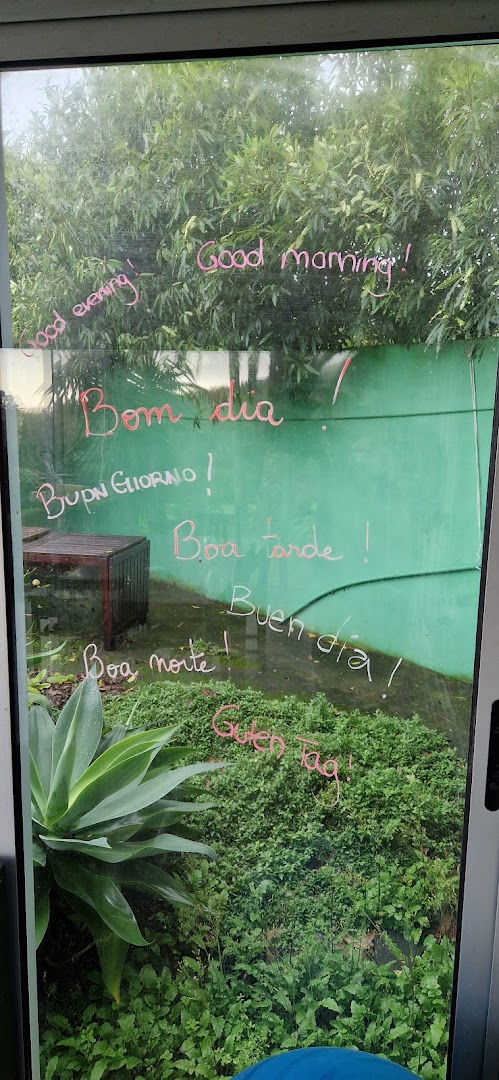 Good morning!
Good evening!
Bom dia!
BUON GIORNO!
Boa tarde!
Buen dia!
Boa noite!
Guten Tag!